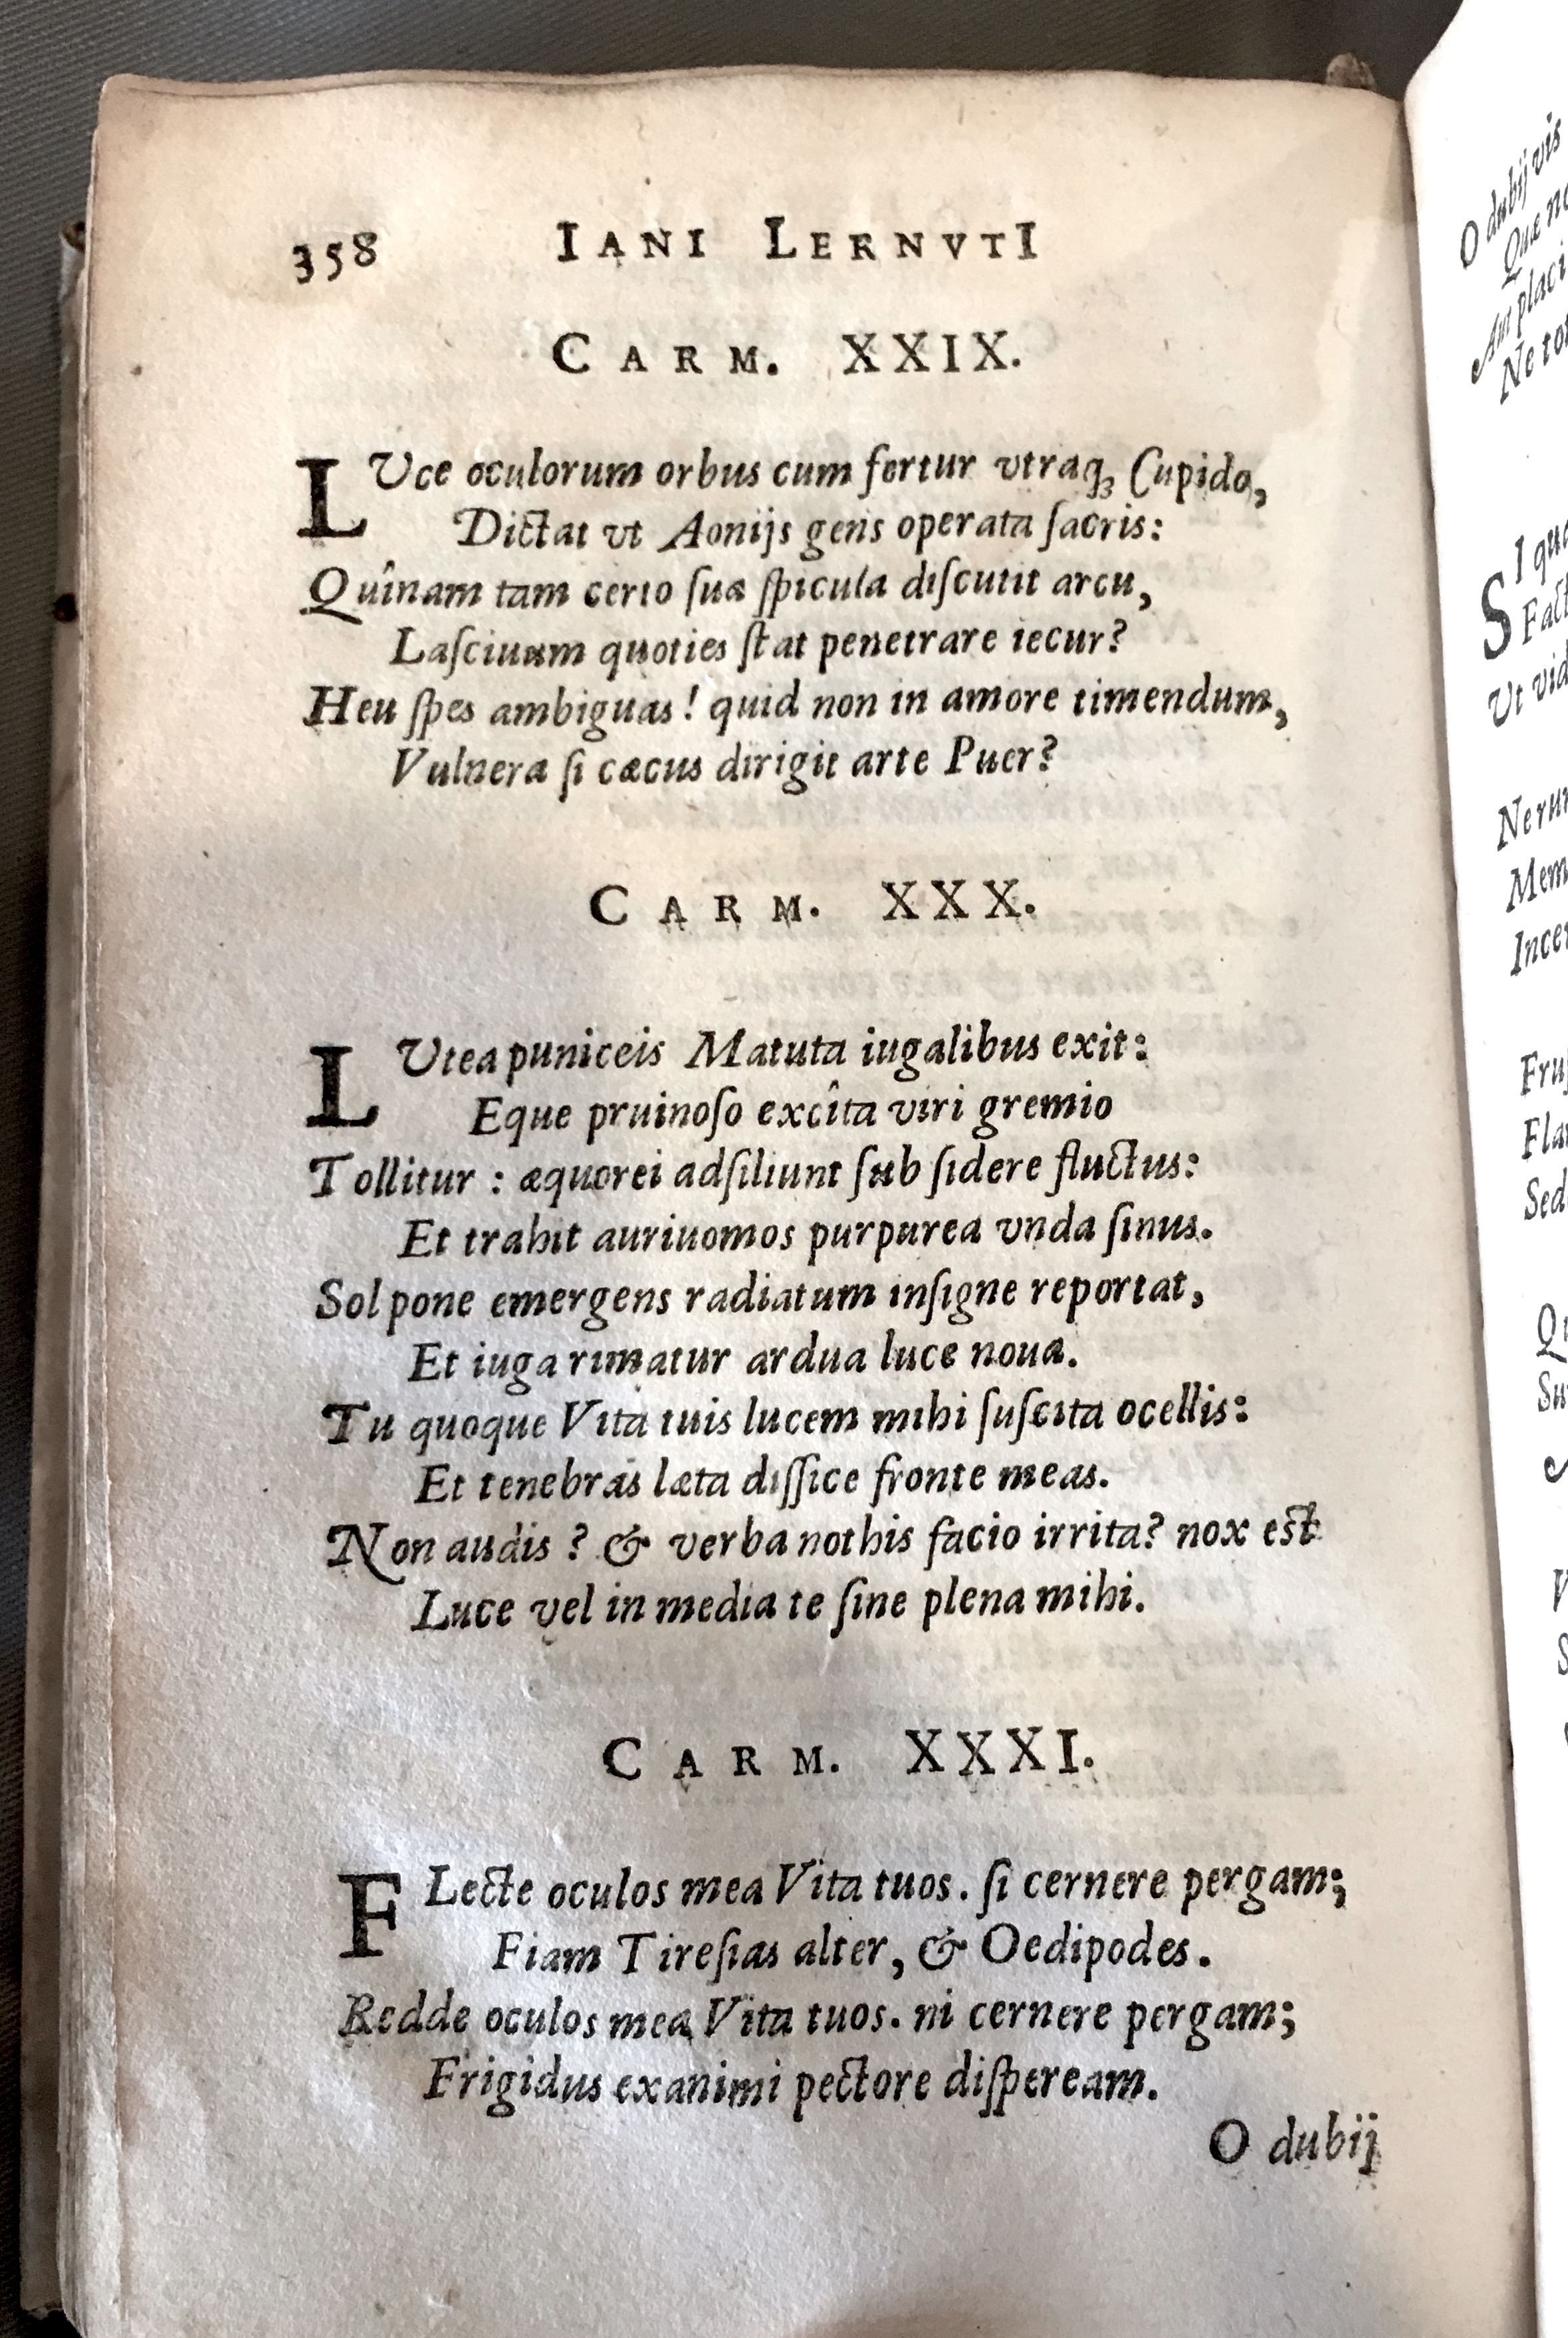 358 IANI LERNVTI
CARM. XXIX.
LUce oculorum orbus cum fertur vtraq; Cupido,
Dictat vt Aonijs gens operata ſacris:
Quînam tam certo ſua ſpicula diſcutit arcu,
Laſciuum quoties ſtat penetrare iecur?
Heu ſpes ambiguas! quid non in amore timendum,
Vulnera ſi cæcus dirigit arte Puer?
CARM. XXX.
LUtea puniceis Matuta iugalibus exit:
Eque pruinoſo excîta viri gremio
Tollitur : æquorei adſiliunt ſub ſidere fluctus:
Et trahit auriuomos purpurea vnda ſinus.
Sol pone emergens radiatum inſigne reportat,
Et iuga rimatur ardua luce noua.
Tu quoque Vita tuis lucem mihi ſuſcita ocellis:
Et tenebras læta diſſice fronte meas.
Non audis ? & verba nothis facio irrita? nox est
Luce vel in media te ſine plena mihi.
CARM. XXXI.
FLecte oculos mea Vita tuos. ſi cernere pergam;
Fiam Tireſias alter, & Oedipodes.
Redde oculos mea Vita tuos. ni cernere pergam;
Frigidus exanimi pectore diſpeream.
O dubij
O dubij vis
Quæ
An placi
Ne
SI
Ut